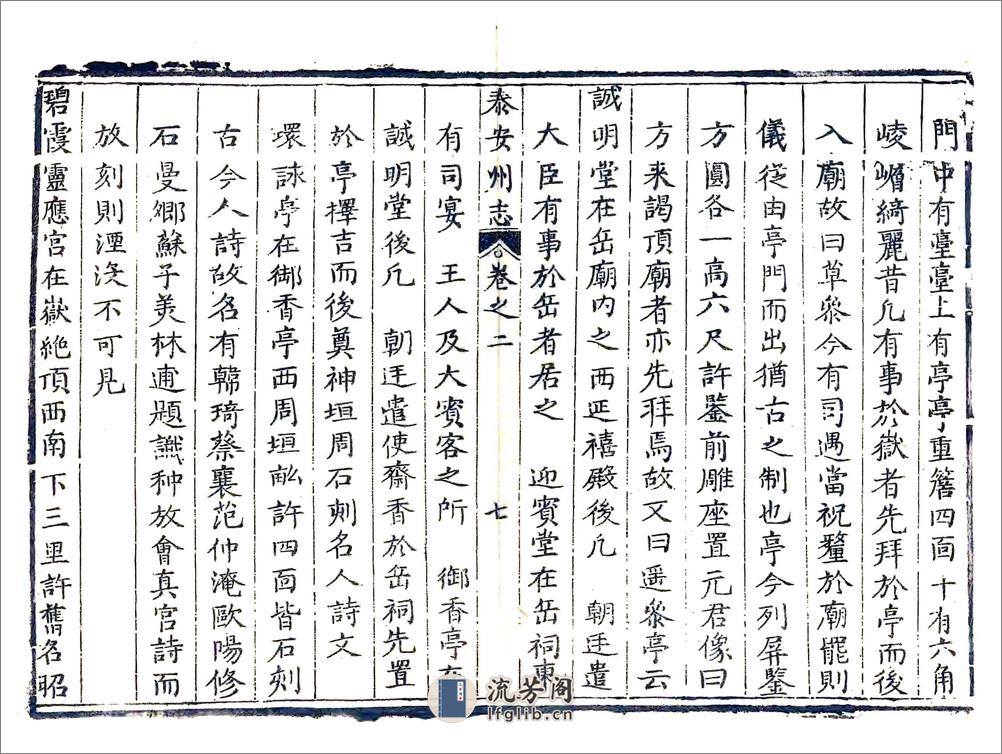 門中有臺臺上有亭亭重簷四面十有六角
崚嶒綺麗昔凡有事於嶽者先拜於亭而後
入廟故曰草參今有司遇當祝釐於廟罷則
儀從由亭門而出猶古之制也亭今列屏鑒
方圓各一高六尺許鑒前雕座置元君像曰
方来謁頂廟者亦先拜焉故又曰遥參亭云
誠明堂在岳廟内之西延禧殿後凡 朝廷遣
大臣有事於岳者居之 迎賓堂在岳祠東
泰安州志 卷之二 七
有司宴 王人及大賓客之所 御香亭在
誠明堂後凡 朝廷遣使齋香於岳祠先置
於亭擇吉而後奠神垣周石刻名人詩文
環詠亭在御香亭西周垣畝許四面皆石刻
古今人詩故名有韓琦蔡襄范仲淹歐陽修
石曼卿蘇子美林逋題識种放會真宫詩而
放刻則湮沒不可見
碧霞靈應宮在嶽絶頂西南下三里許舊名昭
流芳阁
lfglib.cn